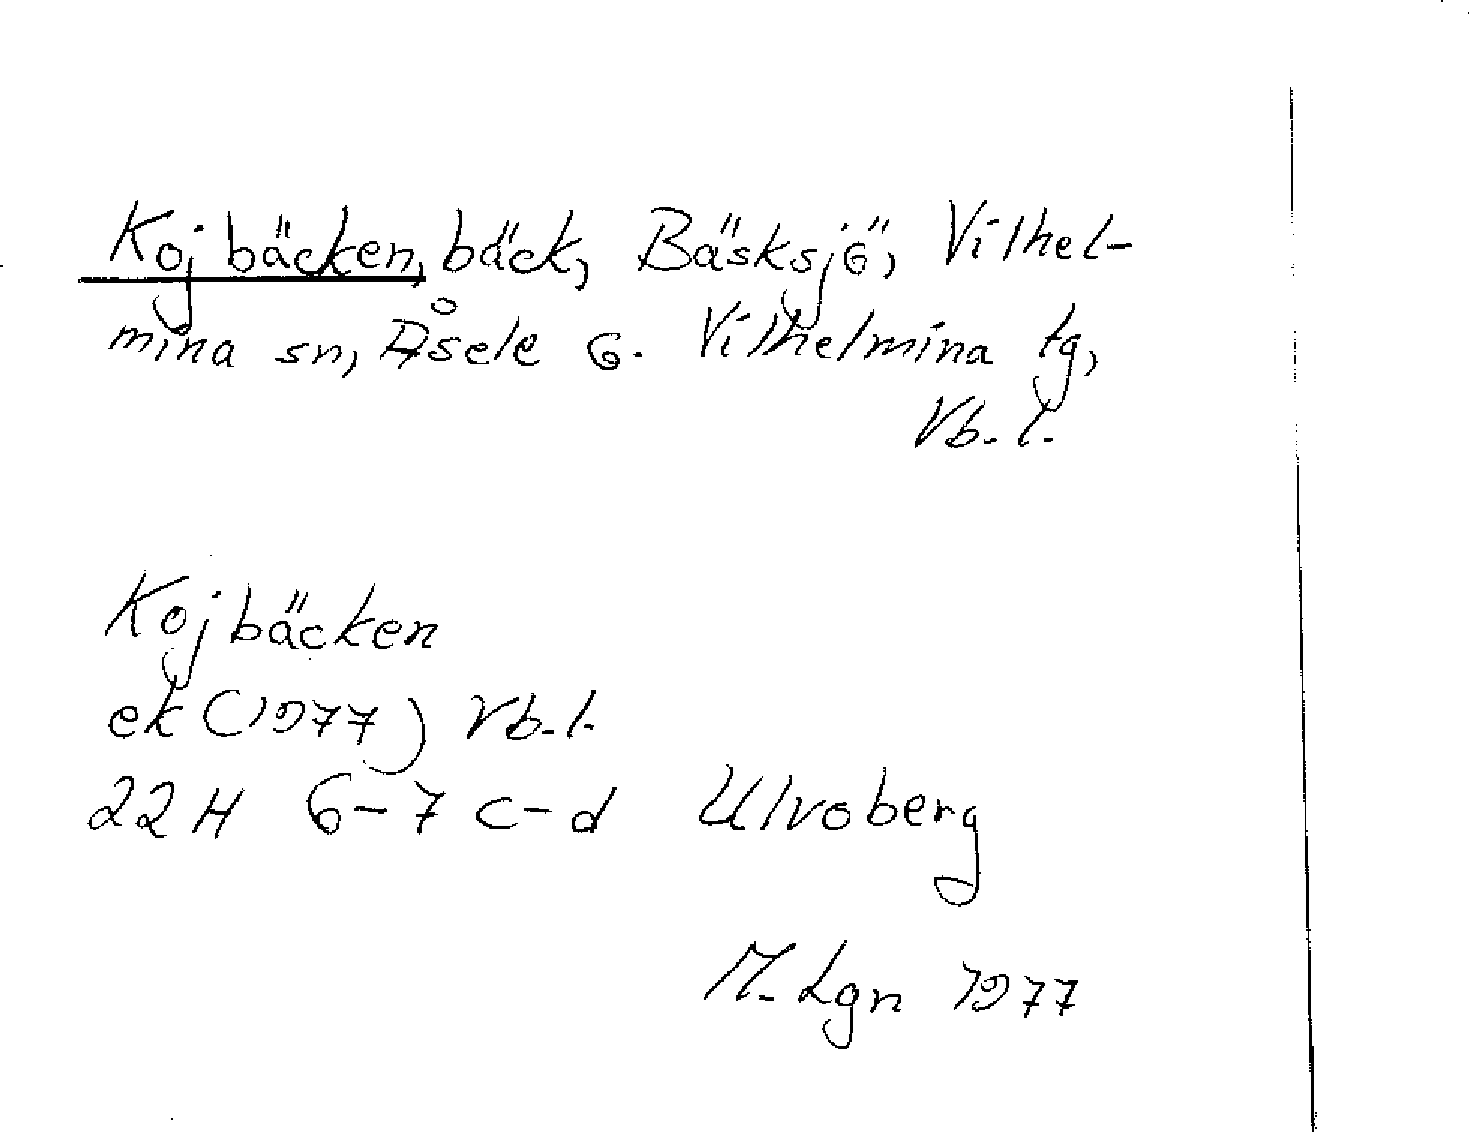 Kojbäcken, bäck, Bäsksjö, Vilhel-
mina sn, Åsele G. Vilhelmina tg,
Vb. l.
Kojbäcken
ek (1977) Vb. l.
22 H 6-7 c-d Ulvoberg
M. Lgn 1977